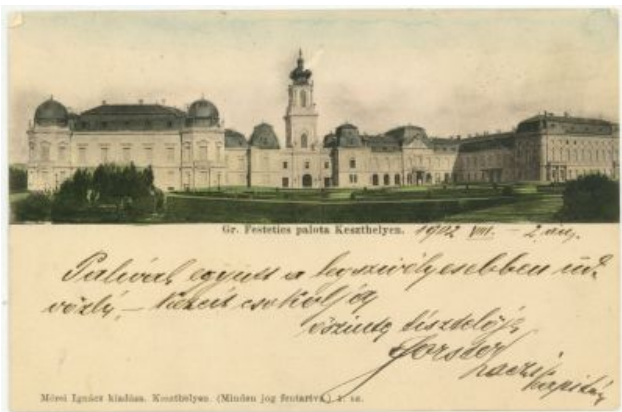 Gr. Festetics palota Keszthelyen. 1902 VIII. – 2 án.
Palival együtt a legszivélyesebben üd-
vözli, – kezeit csokolja
őszinte tisztelője
Forster
kapitány
Mérei Ignácz kiadása. Keszthelyen. (Minden jog fentartva.) 2. sz.